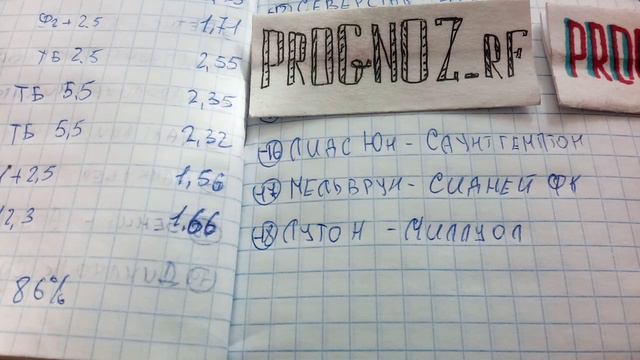 Ф2+2.5 1,71
ТБ 2.5 2,55
ТБ 5,5 2,35
ТБ 5,5 2,32
1+2,5 1,56
2,3 1.66
86%
PROGNOZ.RF
PRO
16 ЛИДС ЮН - САУНТГЕМПТОН
17 МЕЛЬБРУН - СИДНЕЙ ФК
18 ЛУТОН - МИЛЛУОЛ